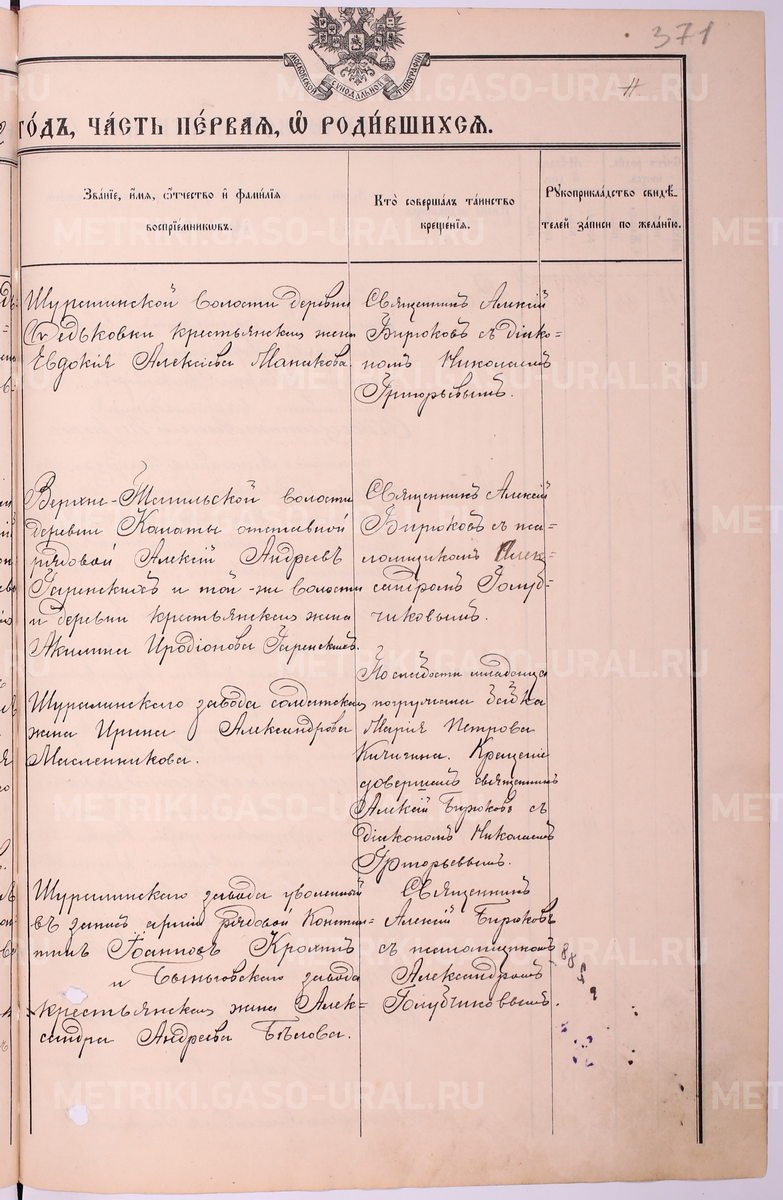 371
МОСКОВСКОЙ СѴНОДАЛЬНОЙ ТИПОГРАФІИ
го́дъ, ча́сть пе́рвая, ѡ҆ роди́вшихсѧ.
Зва́нїе, и҆́мѧ, ѻ҆́тчество и҆ фами́лїѧ
воспрїе́мникѡвъ.
Кто̀ соверша́лъ та́инство
креще́нїѧ.
Рꙋкоприкла́дство свидѣ́-
телей за́писи по жела́нїю.
Шуралинской волости деревни
Федьковки крестьянская жена
Евдокія Алексіева Манакова.
Священникъ Алексій
Бирюковъ съ діако=
номъ Николаемъ
Григорьевымъ.
Верхне-Тагильской волости
деревни Калаты отставной
рядовой Алексій Андреевъ
и той-же волости
и деревни крестьянская жена
Акилина Иродіонова
Священникъ Алексій
Бирюковъ съ пса=
ломщикомъ Алек=
сандромъ Голуб=
чиковымъ.
Шуралинскаго завода солдатская
жена Ирина Александрова
Масленникова.
По слабости младенца
погружала бабка
Марія Петрова
Кичигина. Крещеніе
довершалъ священникъ
Алексій Бирюковъ съ
діакономъ Николаемъ
Григорьевымъ.
Шуралинскаго завода уволенный
въ запасъ арміи рядовой Констан=
тинъ Іоанновъ Крохинъ
и Быньговскаго завода
крестьянская жена Алек=
сандра Андреева Бѣлова.
Священникъ
Алексій Бирюковъ
съ псаломщикомъ
Александромъ
Голубчиковымъ.
METRIKI.GASO-URAL.RU